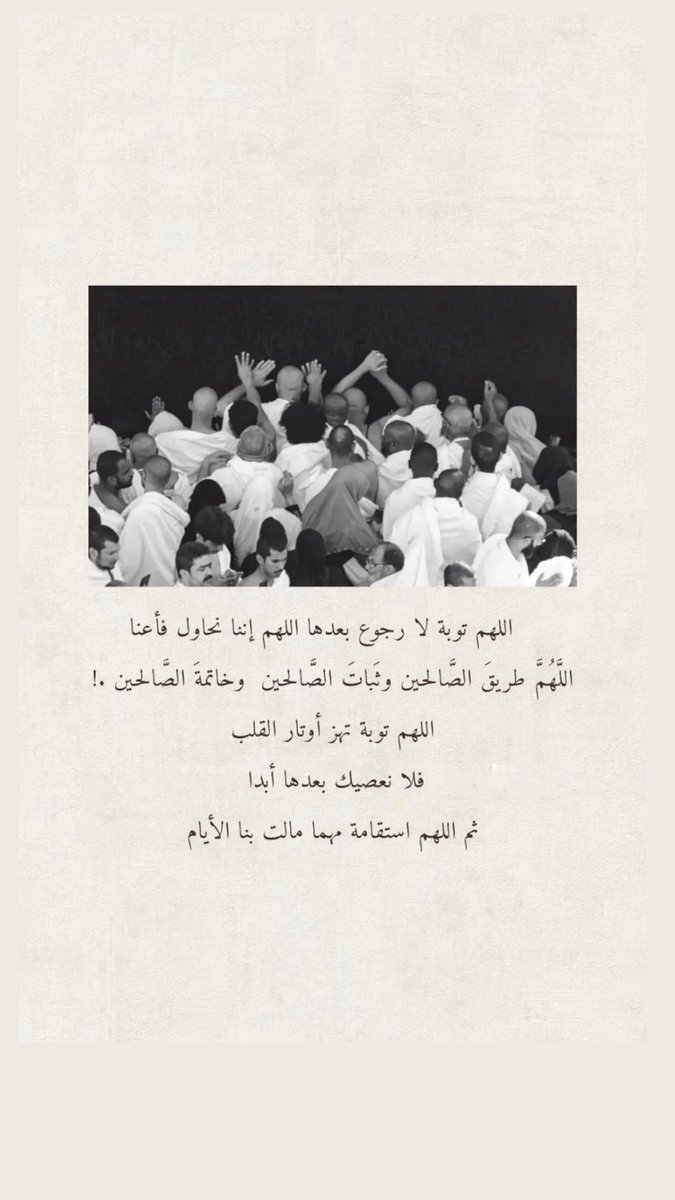 اللهم توبة لا رجوع بعدها اللهم إننا نحاول فأعنا
اللَّهُمَّ طريقَ الصَّالحين وثَباتَ الصَّالحين وخاتمةَ الصَّالحين .!
اللهم توبة تهز أوتار القلب
فلا نعصيك بعدها أبدا
ثم اللهم استقامة مهما مالت بنا الأيام